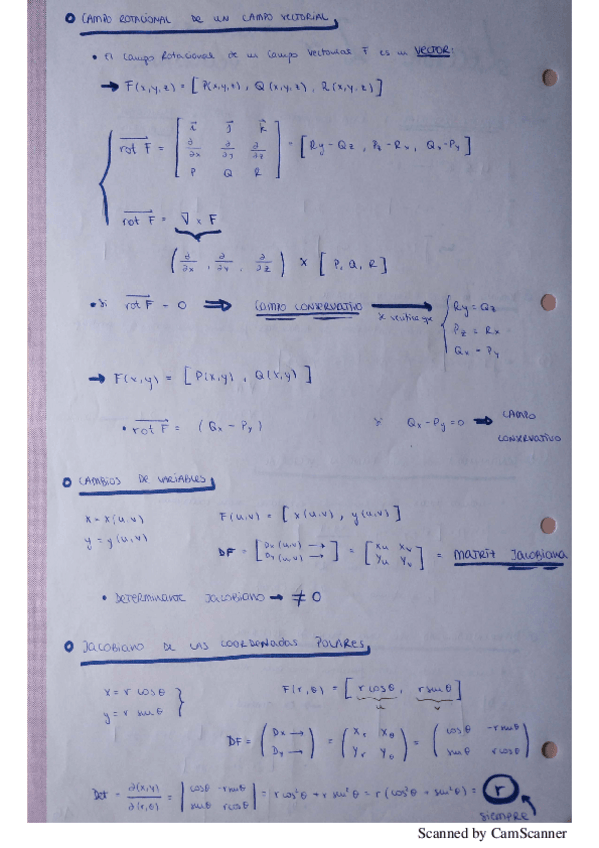 CAMPO ROTACIONAL DE UN CAMPO VECTORIAL
• El campo Rotacional de un campo vectorial F es un VECTOR:
→ F(x,y,z) = [P(x,y,z), Q(x,y,z), R(x,y,z)]
rot F = [i j k; ∂/∂x ∂/∂y ∂/∂z; P Q R] = [Ry - Qz, Pz - Rx, Qx - Py]
rot F = ∇ x F
(∂/∂x, ∂/∂y, ∂/∂z) x [P, Q, R]
• Si rot F = 0 ⇒ CAMPO CONSERVATIVO → se verifica que { Ry = Qz
Pz = Rx
Qx = Py
→ F(x,y) = [P(x,y), Q(x,y)]
• rot F = (Qx - Py) Si Qx - Py = 0 → CAMPO
CONSERVATIVO
CAMBIOS DE VARIABLES
x = x(u,v) F(u,v) = [x(u,v), y(u,v)]
y = y(u,v)
DF = [Dx(u,v) →; Dy(u,v) →] = [xu xv; yu yv] = MATRIZ JACOBIANA
• DETERMINANTE JACOBIANO → ≠ 0
JACOBIANO DE LAS COORDENADAS POLARES
x = r cosθ F(r,θ) = [r cosθ, r senθ]
y = r senθ } u v
DF = (Dx →; Dy →) = (Xr Xθ; Yr Yθ) = (cosθ -r senθ; senθ r cosθ)
Det = ∂(x,y)/∂(r,θ) = |cosθ -r senθ; senθ r cosθ| = r cos²θ + r sen²θ = r (cos²θ + sen²θ) = r
siempre
Scanned by CamScanner